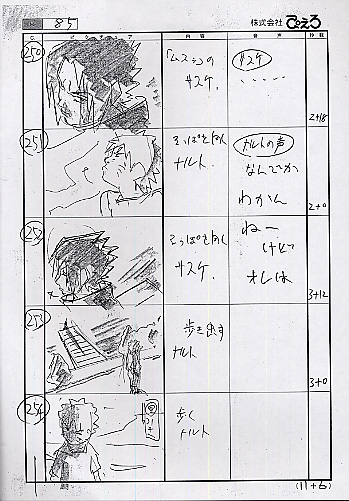 85
株式会社 ぴえろ
C. ピクチュア 内容 音声 秒数
250
「ムスッ」の
サスケ.
サスケ
.....
2+18
251
そっぽを向く
ナルト.
ナルトの声
なんでか
わかん
2+0
252
そっぽを向く
サスケ.
ねー
けど
オレは
3+12
253
歩き出す
ナルト
3+0
254
歩く
ナルト
(11+6)